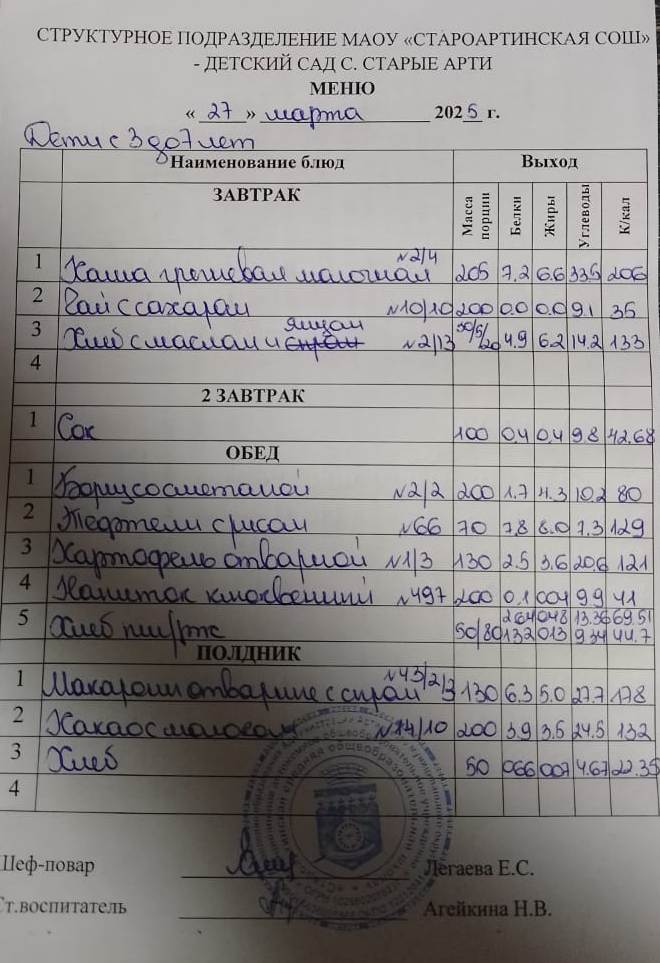 СТРУКТУРНОЕ ПОДРАЗДЕЛЕНИЕ МАОУ «СТАРОАРТИНСКАЯ СОШ»
- ДЕТСКИЙ САД С. СТАРЫЕ АРТИ
МЕНЮ
« 27 » марта 2025 г.
Дети с 3 до 7 лет
Наименование блюд Выход
ЗАВТРАК Масса порции Белки Жиры Углеводы К/кал
1 Каша гречневая молочная №2/4 205 7.2 6.6 33.5 206
2 Чай с сахаром №10/10 200 0.0 0.0 9.1 35
3 Хлеб с маслом и сыром яйцом №2/13 30/5/20 4.9 6.2 14.2 133
4
2 ЗАВТРАК
1 Сок 100 0.4 0.4 9.8 42.68
ОБЕД
1 Борщ со сметаной №2/2 200 1.7 4.3 10.2 80
2 Тефтели с рисом №66 70 7.8 8.0 7.3 129
3 Картофель отварной №1/3 130 2.5 3.6 20.6 121
4 Напиток клюквенный №497 200 0.1 0.04 9.9 41
2.64 0.48 13.36 69.51
5 Хлеб пш/рж 50/80 1.32 0.13 9.34 44.7
ПОЛДНИК
1 Макароны отварные с сыром №43/2/3 130 6.3 5.0 27.7 178
2 Какао с молоком №14/10 200 3.9 3.5 24.5 132
3 Хлеб 50 0.66 0.07 4.67 22.35
4
Шеф-повар Легаева Е.С.
Ст.воспитатель Агейкина Н.В.